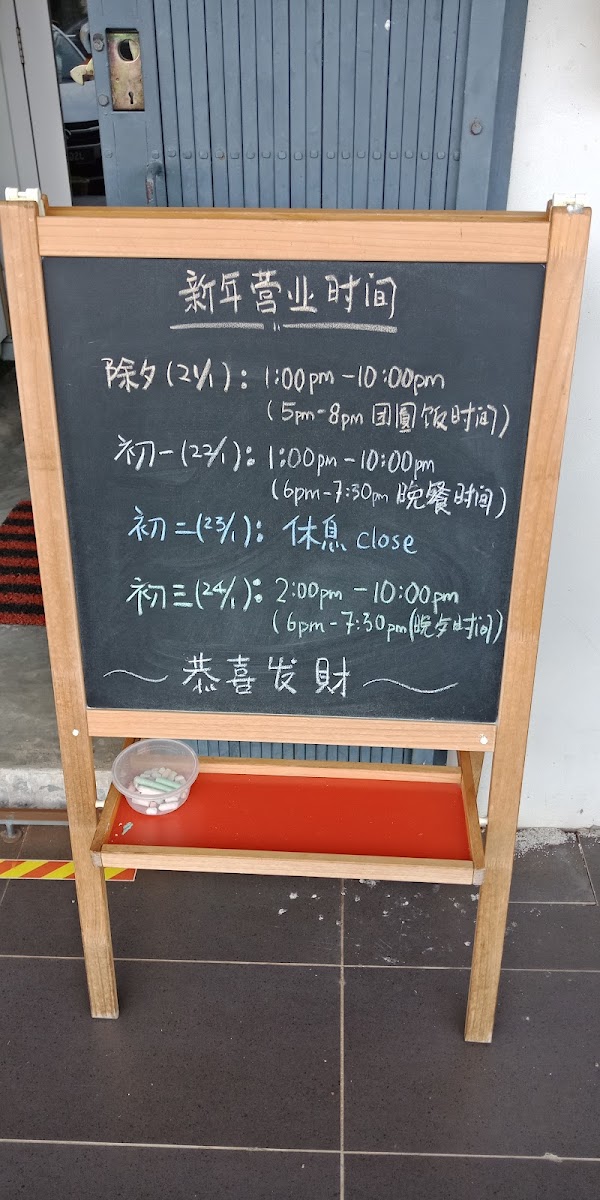 新年营业时间
除夕(21/1): 1:00pm-10:00pm
(5pm-8pm 团圓饭时间)
初一(22/1): 1:00pm-10:00pm
(6pm-7:30pm 晚餐时间)
初二(23/1): 休息 close
初三(24/1): 2:00pm-10:00pm
(6pm-7:30pm(晚夕时间)
~恭喜发財~